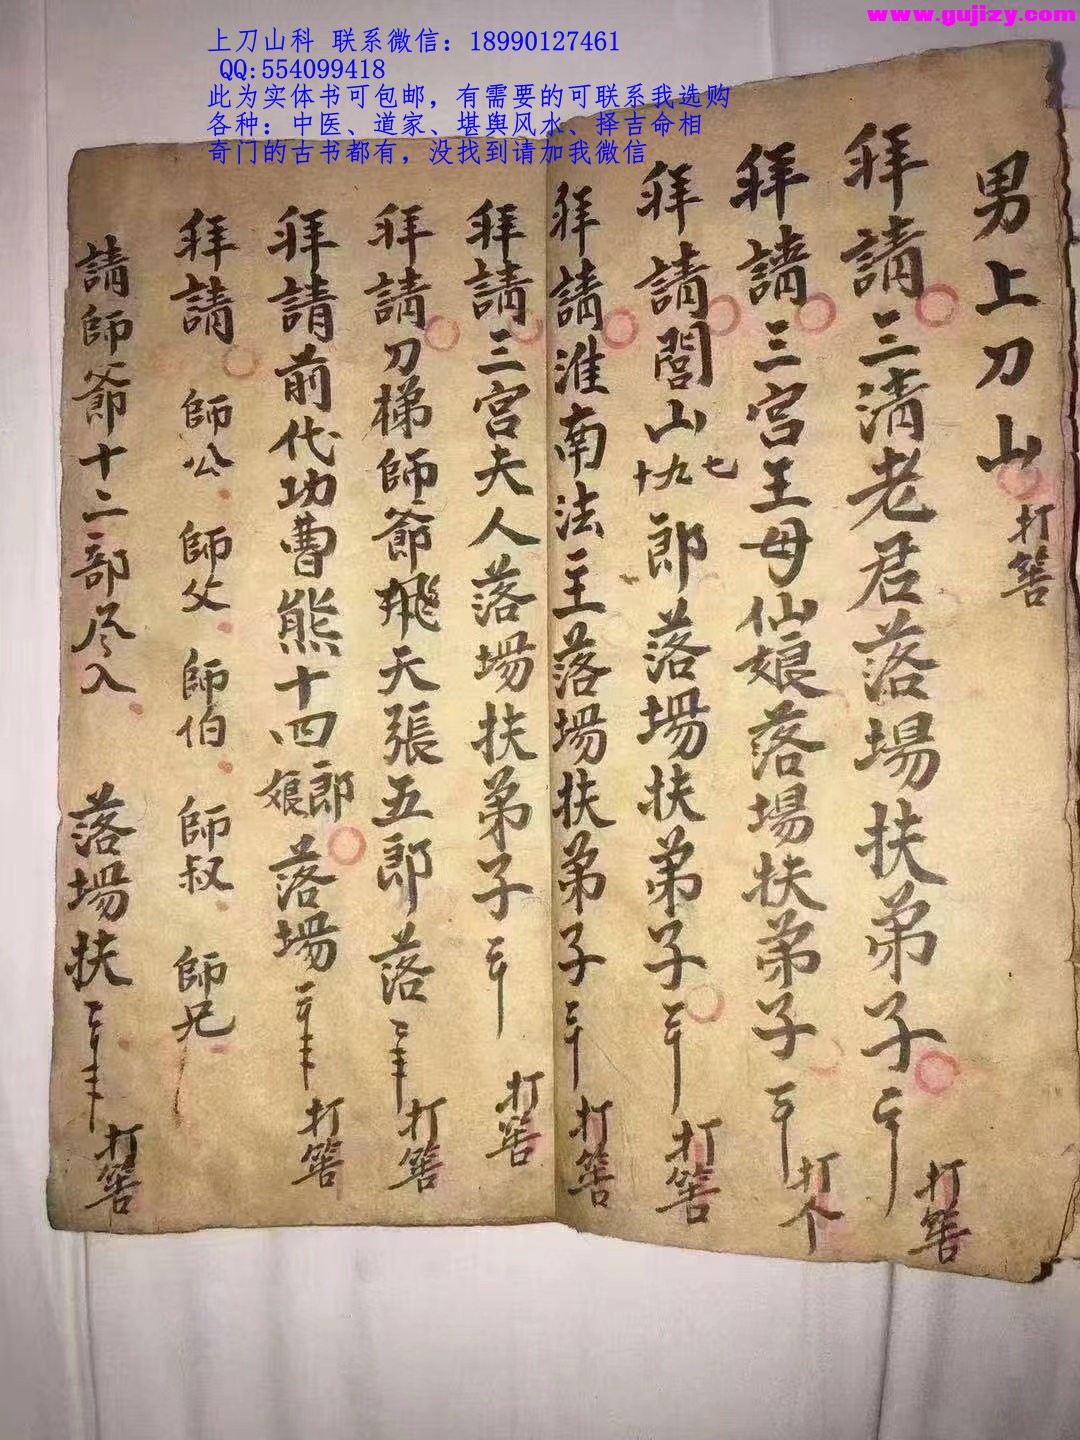 www.gujizy.com
上刀山科 联系微信：18990127461
QQ:554099418
此为实体书可包邮，有需要的可联系我选购
各种：中医、道家、堪舆风水、择吉命相
奇门的古书都有，没找到请加我微信
男上刀山 打筶
拜請三清老君落場扶弟子 打筶
拜請三宫王母仙娘落場扶弟子 打个
拜請閭山十九七郎落場扶弟子 打筶
拜請淮南法主落場扶弟子 打筶
拜請三宮夫人落場扶弟子 打筶
拜請刀梯師爺飛天張五郎落 打筶
拜請前代功曹熊十四郎娘落場 打筶
拜請 師公 師父 師伯 師叔 師兄
請師爺十二部尽入 落場扶 打筶